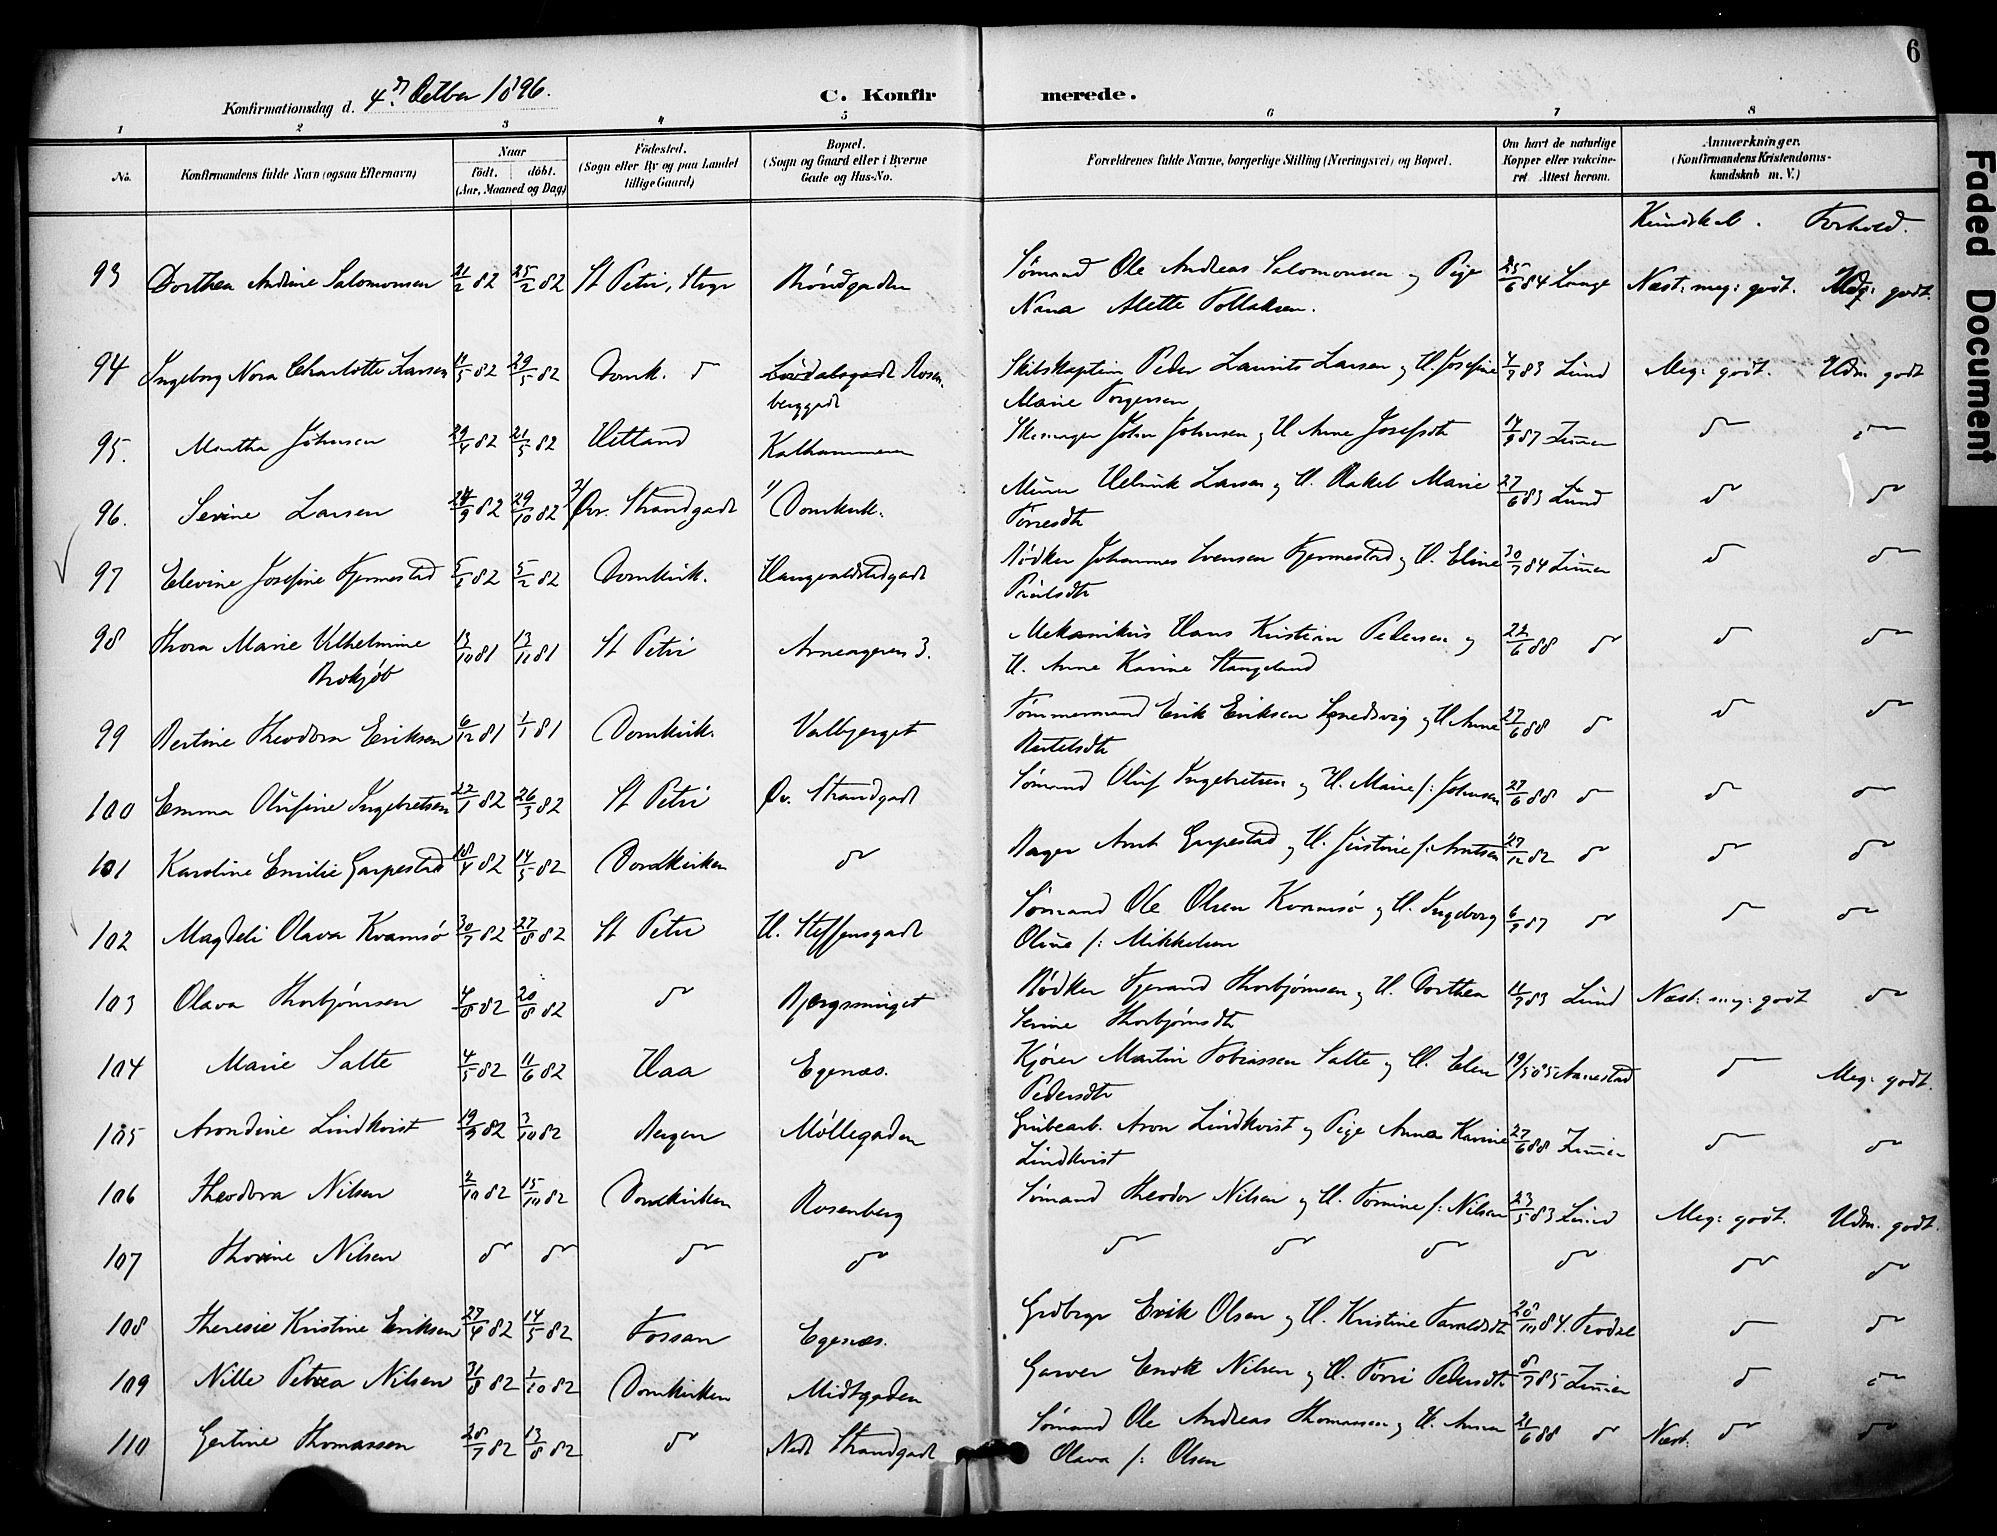 6
Konfirmationsdag d. 4de Octber 1896.
C. Konfirmerede.
1 2 3 4 5 6 7 8
No. Konfirmandens fulde Navn (ogsaa Efternavn) Naar født. døbt. (Aar, Maaned og Dag) Fødested. (Sogn eller By og paa Landet tillige Gaard) Bopæl. (Sogn og Gaard eller i Byerne Gade og Hus-No. Forældrenes fulde Navne, borgerlige Stilling (Næringsvei) og Bopæl. Om havt de naturlige Kopper eller vakcineret Attest herom. Anmærkninger. (Konfirmandens Kristendomskundskab m. V.)
Kundskab. Forhold.
93 Dorthea Andrine Salomonsen 21/2 82 25/2 82 St Petri, Sømand Ole Andreas Salomonsen og Pige 25/6 84 Lange Næst: meg: godt. Meg: godt.
Nana Alette Tollaksen.
94 Ingeborg Nora Charlotte Larsen 11/5 82 29/5 82 Domk. Rosen Skibskaptein Peder Laurits Larsen og H. Josefine 4/7 83 Lund Meg: godt. Udm. godt
berggadt Marie Torgersen
95. Martha Johnsen 29/4 82 21/5 82 Hetland Kalhammeren John Johnsen og H Anne Josefsdt 14/9 87 Zimmer do do
96. Sevine Larsen 24/9 82 29/10 82 2/ Øv. Strandgadt 1/ Domkirk. Murer Helmik Larsen og H. Rakel Marie 27/6 83 Lund do do
Torresdtr
97 Elevine Josefine Fjermestad 5/1 82 5/2 82 Domkirk. Haugvaldstadgadt Bødker Johannes Svensen Fjermestad og H. Eline 30/7 84 Zimmer do do
Paulsdtr
98 Thora Marie Vilhelmine 13/10 81 13/11 81 St Petri Arneageren 3. Mekanikus Hans Kristian Pedersen og 22/6 88 do do do
Brokjøb H. Anne Karine Stangeland
99 Bertine Theodora Eriksen 6/12 81 1/1 81 Domkirk. Valbjerget Tømmermand Erik Eriksen og H Anne 27/6 88 do do do
Bertelsdtr
100 Emma Olufine Ingebretsen 22/1 82 26/3 82 St Petri Øv. Strandgadt Sømand Oluf Ingebretsen og H. Marie f: Johnsen 27/6 88 do do do
101 Karoline Emilie Garpestad 18/4 82 14/5 82 Domkirken do Bager Arnt Garpestad og H. Justine f: Arntsen 27/12 82 do do do
102 Magdeli Olava Kvamsø 30/7 82 27/8 82 St Petri H. Steffensgadt Sømand Ole Olsen Kvamsø og H. Ingeborg 6/9 87 do do do
Oline f: Mikkelsen
103 Olava Thorbjørnsen 4/8 82 20/8 82 do Bjergsmuget Bødker Tjerand Thorbjørnsen og H. Dorthea 11/7 83 Lund Næst: meg: godt do
Serine Thorbjørnsdtr
104 Marie Salte 4/5 82 11/6 82 Haa Egenæs. Kjører Martin Tobiassen Salte og H. Elen 19/5 85 Aanestad do Meg: godt.
Pedersdtr
105 Arondine Lindkvist 19/9 82 3/10 82 Bergen Møllegaden Grubearb. Aron Lindkvist og Pige Anna Karine 27/6 88 Zimmer do do
Lindkvist
106 Theodora Nilsen 2/10 82 15/10 82 Domkirken Rosenberg Sømand Theodor Nilsen og H. Tomine f: Nilsen 23/5 83 Lund Meg: godt. Udm. godt.
107 Thorine Nilsen do do do do do do do do do do do
108 Theresie Kristine Eriksen 27/4 82 14/5 82 Fossan Egenæs. Grdbrgr Erik Olsen og H. Kristine Taraldsdtr 28/10 84. Frodal do do
109 Nille Petrea Nilsen 31/8 82 1/10 82 Domkirken Midtgaden Garver Enok Nilsen og H. Torri Pedersdtr 8/7 85 Zimmer do do
110 Gertine Thomassen 28/7 82 13/8 82 do Nedr Strandgadt Sømand Ole Andreas Thomassen og H. Anna 21/6 88 do Næst: do do
Olava f: Olsen
Faded Document